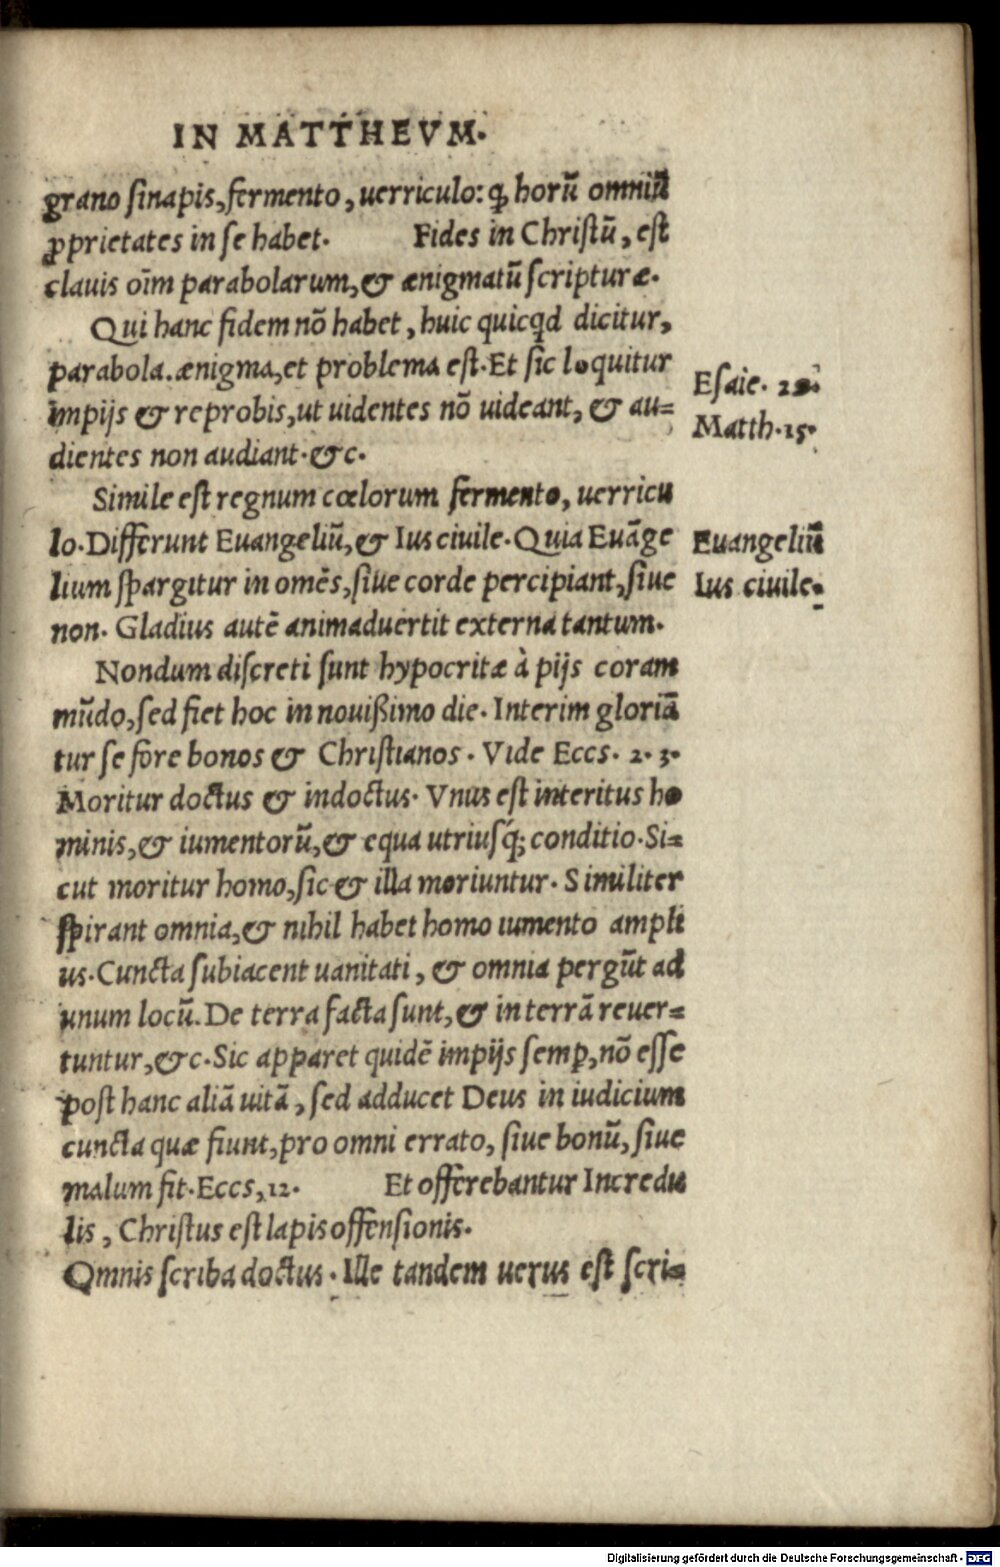 IN MATTHEVM.
grano ſinapis, fermento, uerriculo: ꝙ horũ omniũ
ꝓprietates in ſe habet. Fides in Chriſtũ, eſt
clauis oĩm parabolarum, & ænigmatũ ſcripturæ.
Qui hanc fidem nõ habet, huic quicꝗd dicitur,
parabola. ænigma, et problema eſt. Et ſic loquitur
impijs & reprobis, ut uidentes nõ uideant, & au=
dientes non audiant. &c.
Esaie.
Matth. 15.
Simile eſt regnum cœlorum fermento, uerricu
lo. Differunt Euangeliũ, & Ius ciuile. Quia Euãge
lium ſpargitur in omẽs, ſiue corde percipiant, ſiue
non. Gladius autẽ animaduertit externa tantum.
Euangeliũ
Ius ciuile.
Nondum diſcreti ſunt hypocritæ à pijs coram
mũdo, ſed fiet hoc in nouißimo die. Interim gloriã
tur ſe fore bonos & Chriſtianos. Vide Eccs. 2. 3.
Moritur doctus & indoctus. Vnus eſt interitus ho
minis, & iumentorũ, & equa utriuſq́; conditio. Si=
cut moritur homo, ſic & illa moriuntur. Similiter
ſpirant omnia, & nihil habet homo iumento ampli
us. Cuncta ſubiacent uanitati, & omnia pergũt ad
unum locũ. De terra facta ſunt, & in terrã reuer=
tuntur, &c. Sic apparet quidẽ impijs ſemꝑ, nõ eſſe
poſt hanc aliã uitã, ſed adducet Deus in iudicium
cuncta quæ fiunt, pro omni errato, ſiue bonũ, ſiue
malum fit. Eccs, 12. Et offerebantur Incredu
lis, Chriſtus eſt lapis offenſionis.
Omnis ſcriba doctus. Ille tandem uerus eſt ſcri=
Digitalisierung gefördert durch die Deutsche Forschungsgemeinschaft - DFG